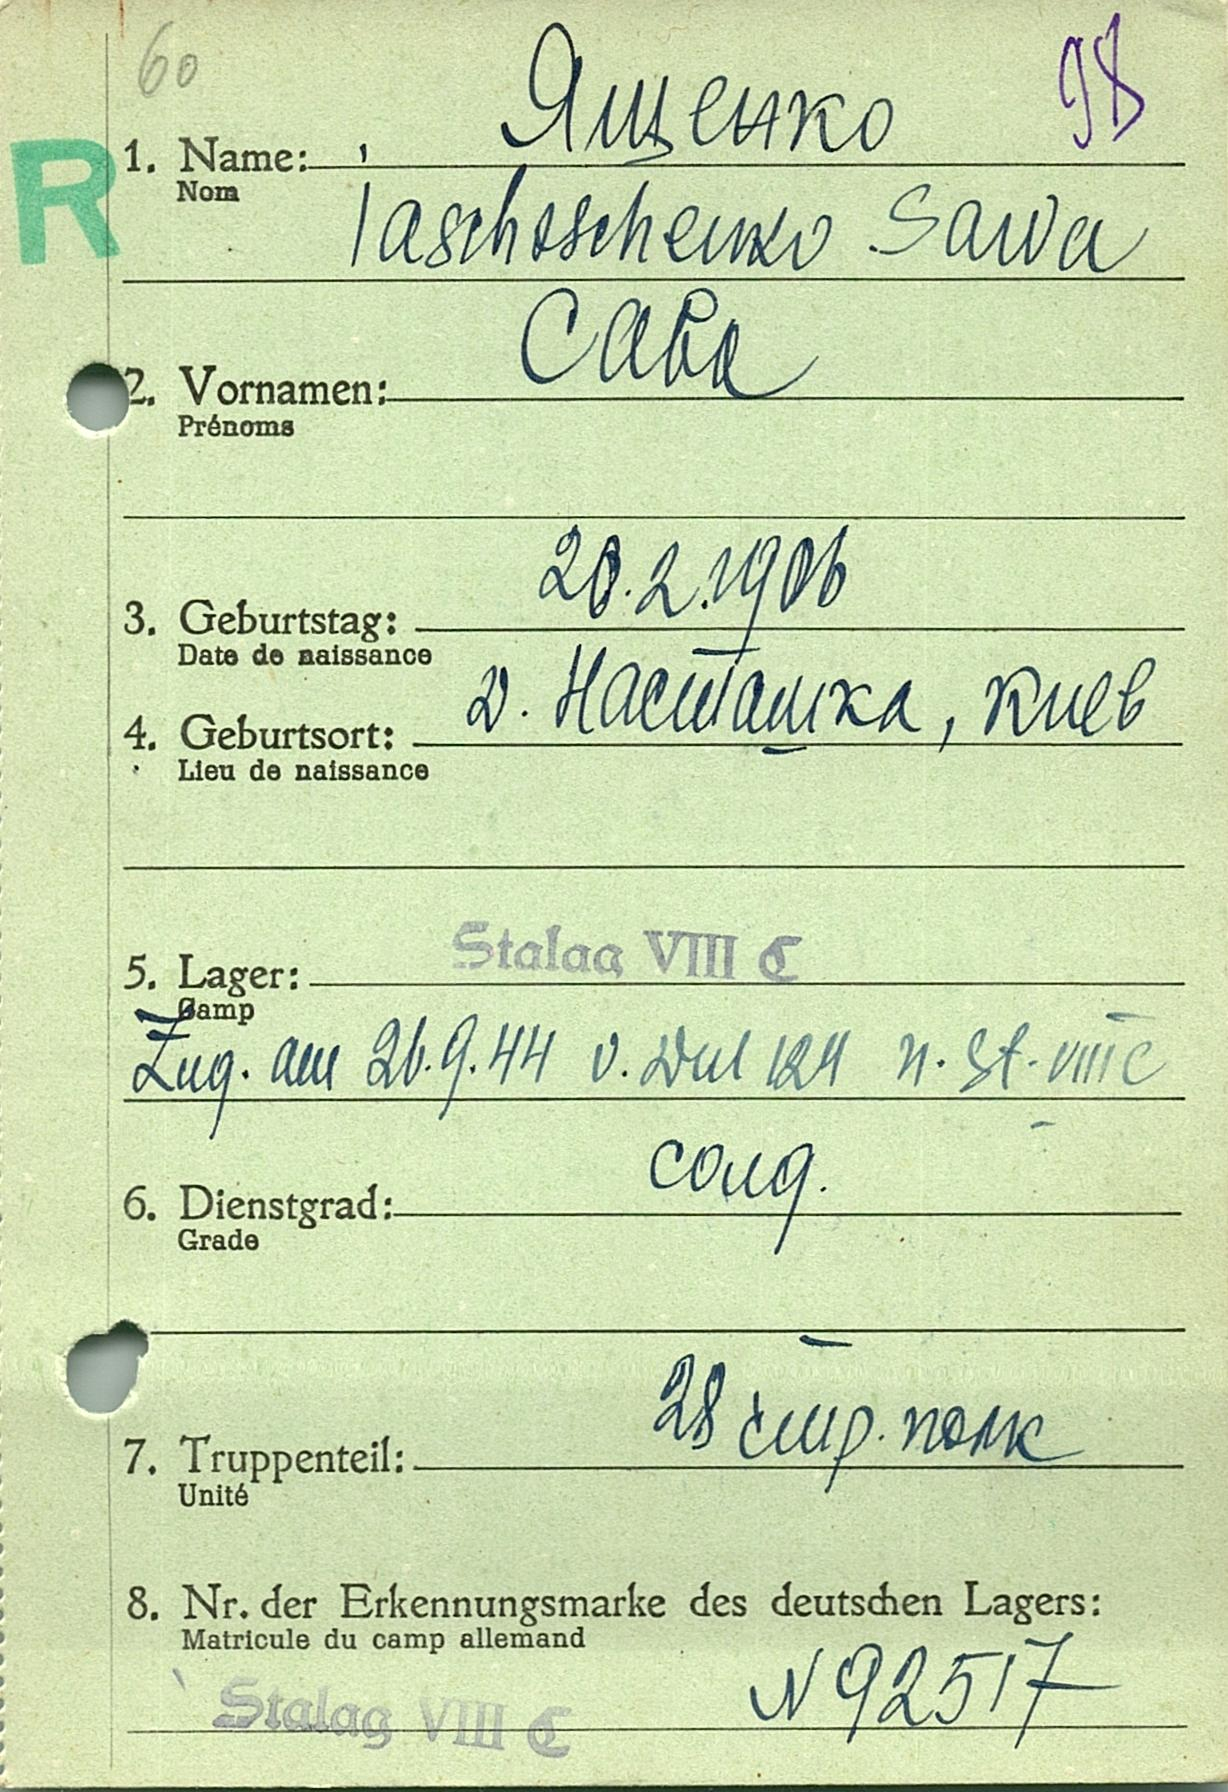 60
98
R
Ященко
1. Name:
Nom
Iaschtschenko Sawa
Сава
2. Vornamen:
Prénoms
20.2.1906
3. Geburtstag:
Date de naissance
д. Насташка, Киев
4. Geburtsort:
Lieu de naissance
Stalag VIII C
5. Lager:
Camp
Zug. am 26.9.44 v. Dul 124 n. St. VIII C
солд.
6. Dienstgrad:
Grade
28 стр. полк
7. Truppenteil:
Unité
8. Nr. der Erkennungsmarke des deutschen Lagers:
Matricule du camp allemand
N 92517
Stalag VIII C